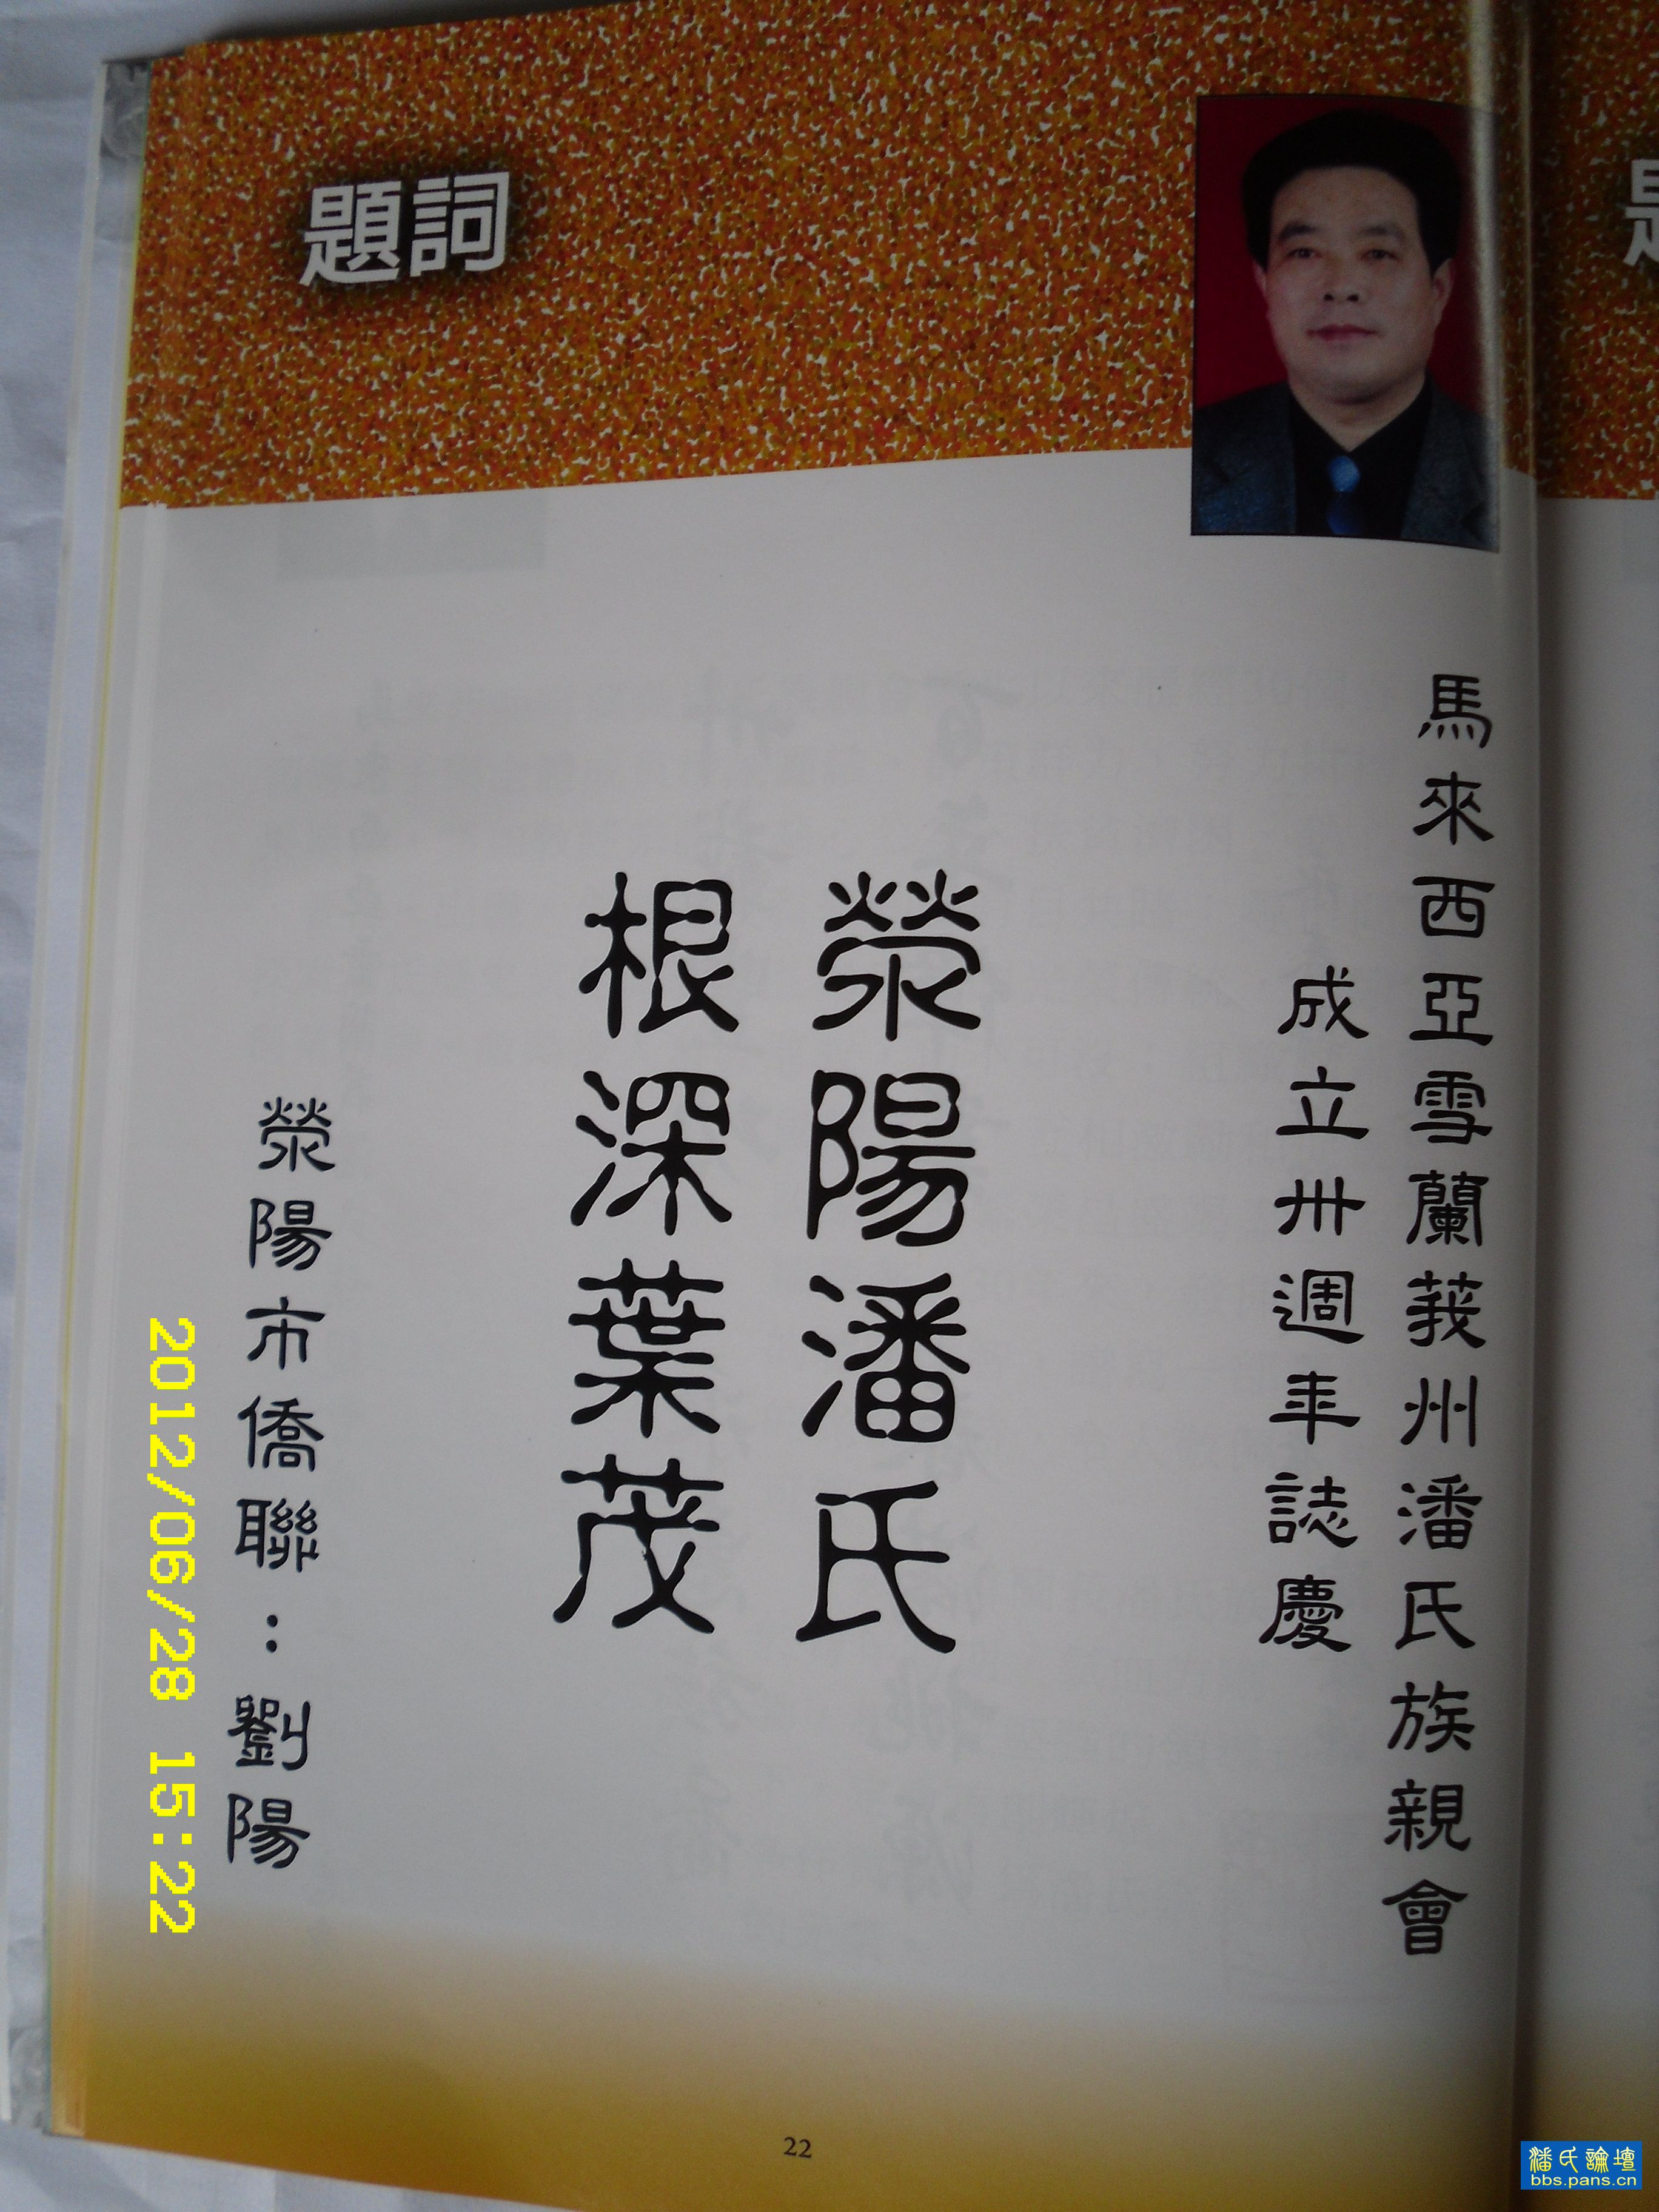 題詞
馬來西亞雪蘭莪州潘氏族親會
成立卅週年誌慶
滎陽潘氏
根深葉茂
滎陽市僑聯：劉陽
2012/06/28 15:22
22
潘氏論壇
bbs.pans.cn